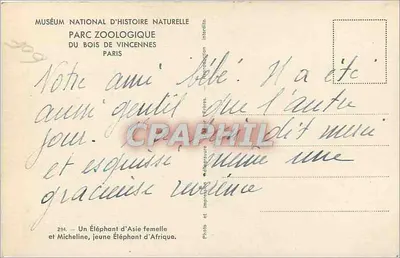 MUSÉUM NATIONAL D'HISTOIRE NATURELLE
PARC ZOOLOGIQUE
DU BOIS DE VINCENNES
PARIS
Notre ami bébé. Il a été
aussi gentil que l'autre
jour. dit merci
et esquissé même une
gracieuse révérence
CPARPHIL
294. - Un Éléphant d'Asie femelle
et Micheline, jeune Éléphant d'Afrique.